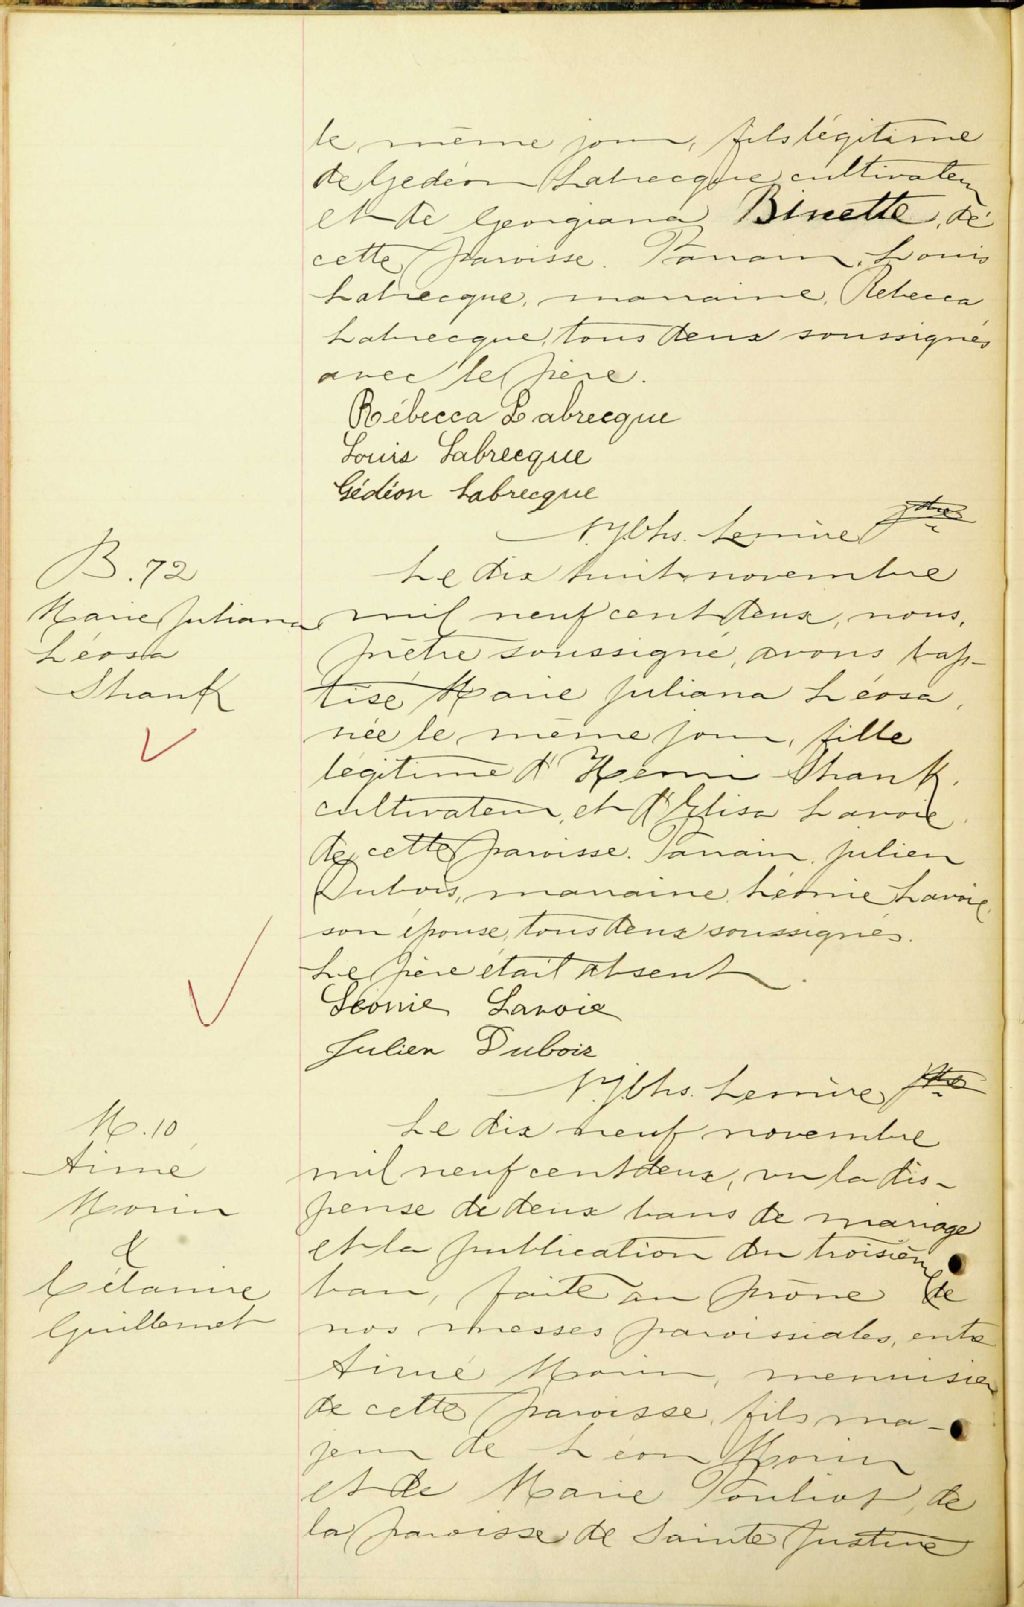 le même jour, fils légitime
de Gédéon Labrecque cultivateur
et de Georgiana Binette, de
cette paroisse. Parrain, Louis
Labrecque, marraine, Rebecca
Labrecque, tous deux soussignés
avec le père.
Rébecca Labrecque
Louis Labrecque
Gédéon Labrecque
Lemire ptre
B. 72
Marie Juliana
Léosa
Shank
Le dix huit novembre
mil neuf cent deux, nous,
prêtre soussigné, avons bap-
tisé Marie Juliana Léosa,
née le même jour, fille
légitime d'Henri Shank,
cultivateur, et d'Elisa Lavoie
de cette paroisse. Parrain, Julien
Dubois, marraine, Léonie Lavoie,
son épouse, tous deux soussignés.
Le père était absent.
Léonie Lavoie
Julien Dubois
Lemire ptre
M. 10
Aimé
Morin
&
Célanire
Guillemet
Le dix neuf novembre
mil neuf cent deux, vu la dis-
pense de deux bans de mariage
et la publication du troisième
ban, faite au prône de
nos messes paroissiales, entre
Aimé Morin, menuisier
de cette paroisse, fils ma-
jeur de Léon Morin
et de Marie Pouliot, de
la paroisse de Sainte Justine